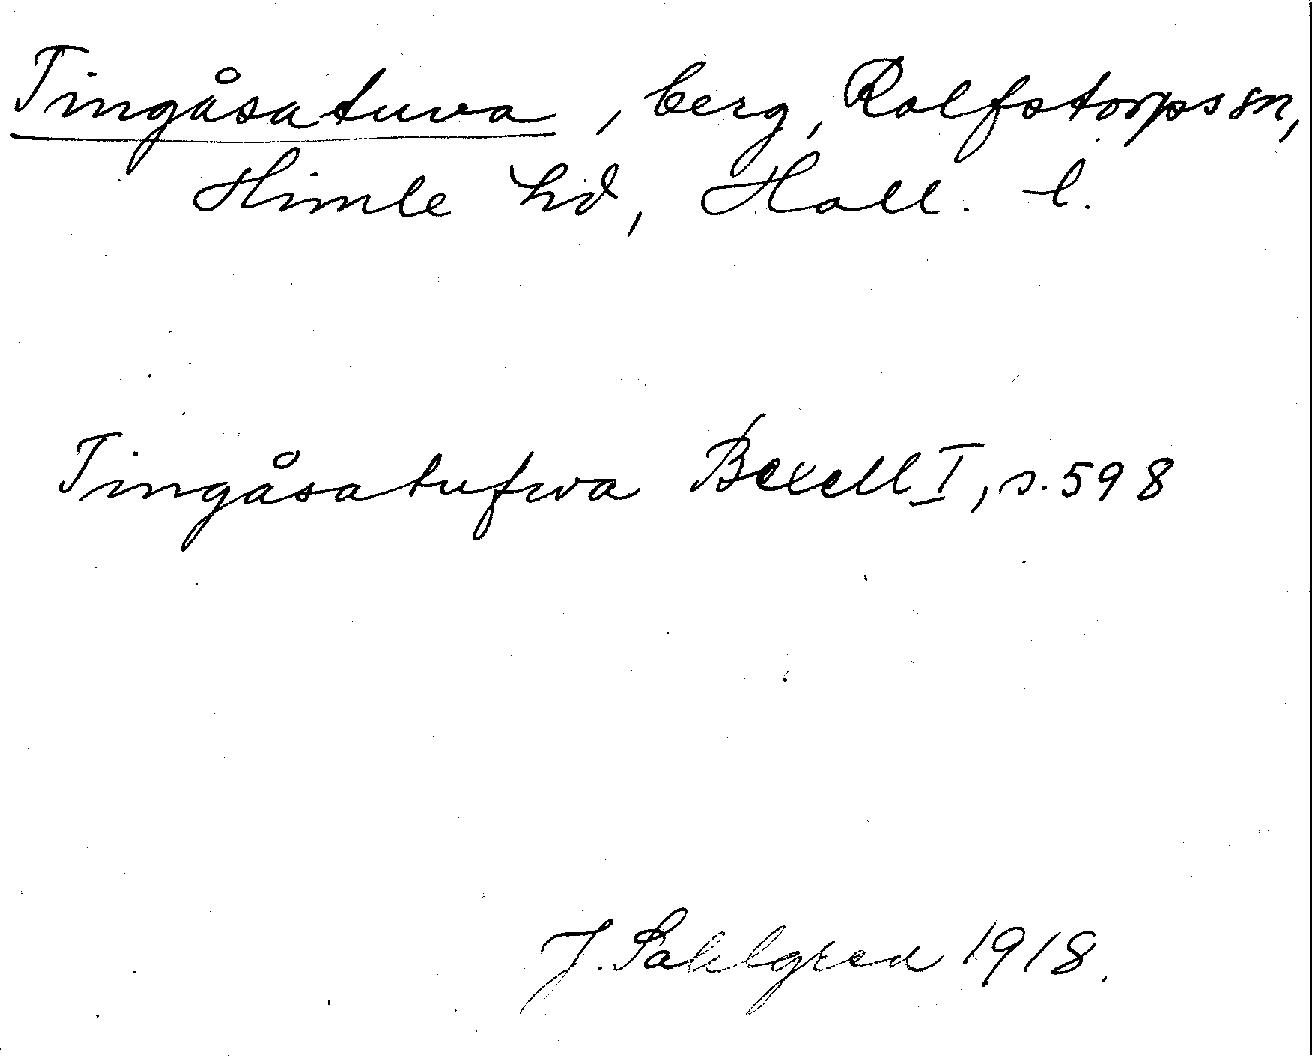 Tingåsatuva, berg, Rolfstorps sn,
Himle hd, Hall. l.
Tingåsatufwa Bexell I, s. 598
J. Sahlgren 1918.